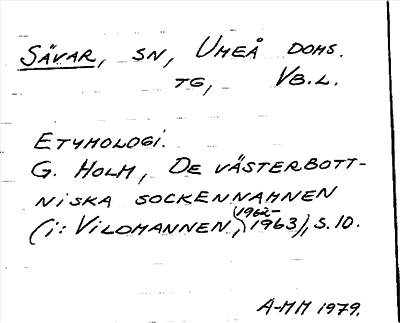 SÄVAR, SN, UMEÅ DOMS.
TG, VB.L.
ETYMOLOGI.
G. HOLM, DE VÄSTERBOTT-
NISKA SOCKENNAMNEN
(i: VILDMANNEN, (1962-1963), S. 10.
A-MM 1979.